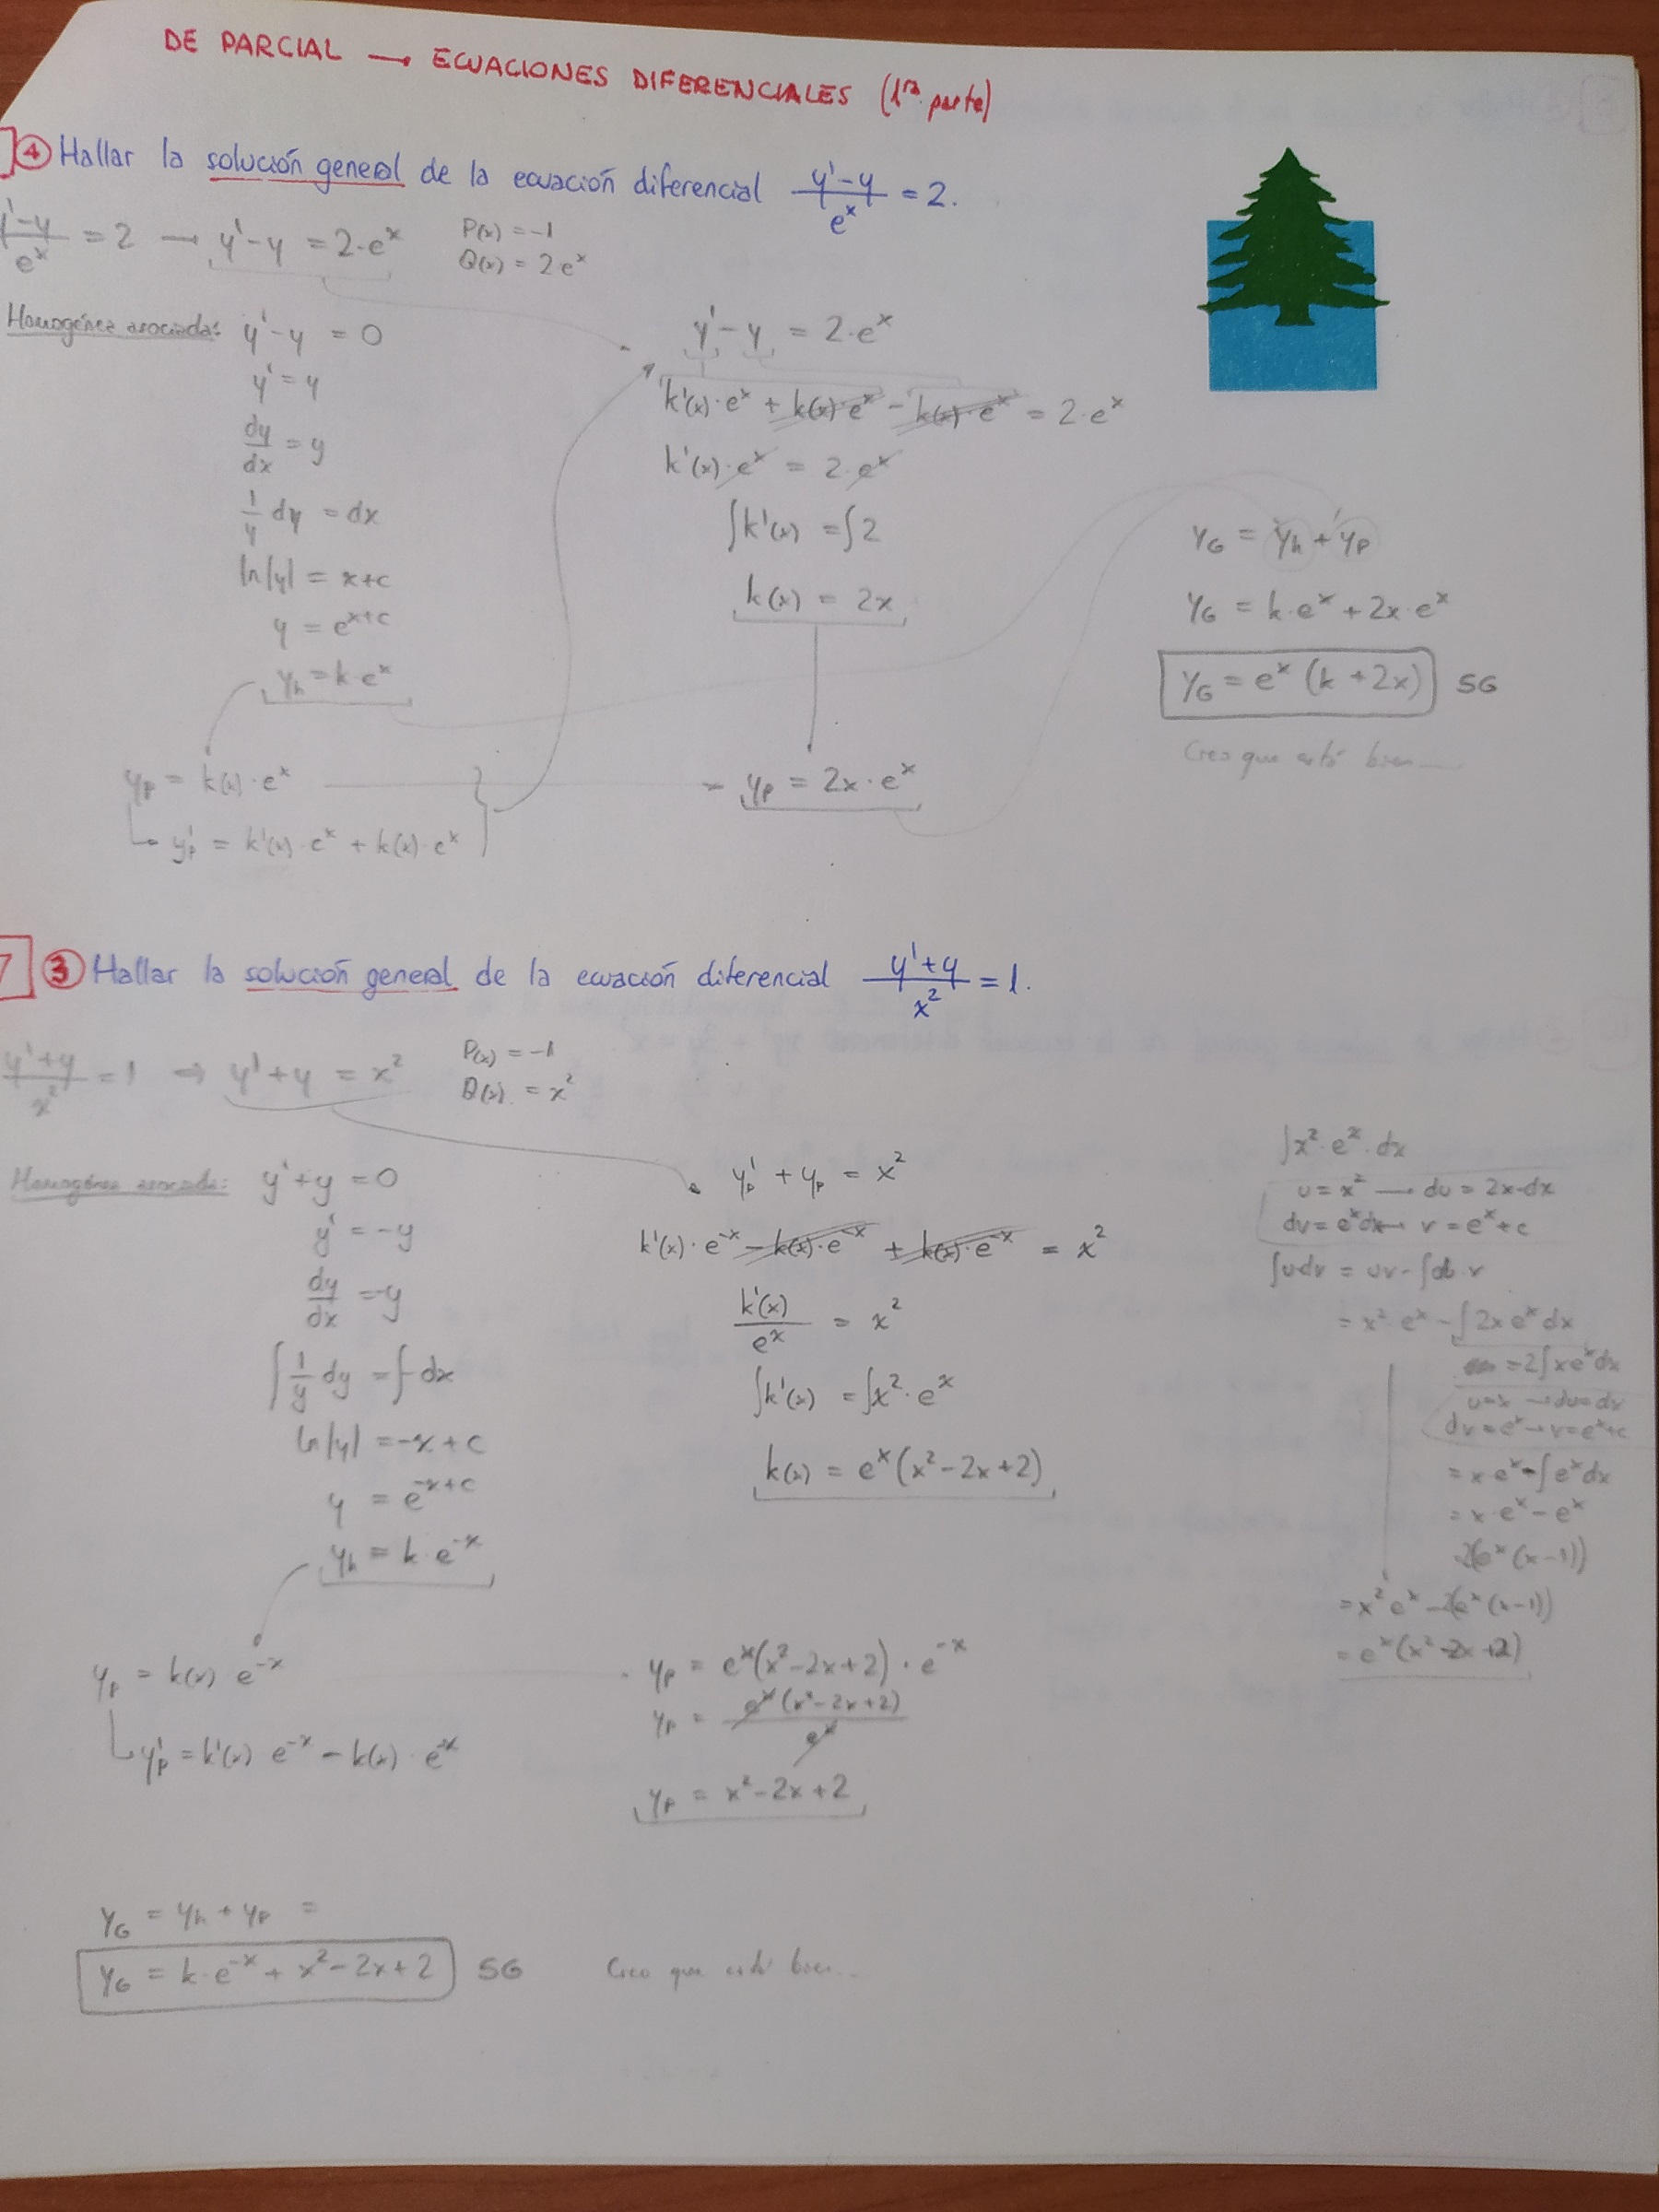 DE PARCIAL → ECUACIONES DIFERENCIALES (1ra. parte)
④ Hallar la solución general de la ecuación diferencial (y'-y)/e^x = 2.
y'-y/e^x = 2 → y'-y = 2·e^x
P(x) = -1
Q(x) = 2e^x
Homogénea asociada: y'-y = 0
y' = y
dy/dx = y
1/y dy = dx
ln|y| = x+c
y = e^(x+c)
yh = k·e^x
yp = k(x)·e^x
y'p = k'(x)·e^x + k(x)·e^x
y'-y = 2·e^x
k'(x)·e^x + k(x)·e^x - k(x)·e^x = 2·e^x
k'(x)·e^x = 2·e^x
∫k'(x) = ∫2
k(x) = 2x
yp = 2x·e^x
YG = yh + yp
YG = k·e^x + 2x·e^x
YG = e^x (k+2x) SG
Creo que está bien...
7 ③ Hallar la solución general de la ecuación diferencial (y'+y)/x² = 1.
y'+y/x² = 1 ⇒ y'+y = x²
P(x) = -1
Q(x) = x²
Homogénea asociada: y'+y = 0
y' = -y
dy/dx = -y
∫1/y dy = ∫-dx
ln|y| = -x+c
y = e^(-x+c)
yh = k·e^-x
yp = k(x) e^-x
y'p = k'(x) e^-x - k(x)·e^-x
y'p + yp = x²
k'(x)·e^-x - k(x)·e^-x + k(x)·e^-x = x²
k'(x)/e^x = x²
∫k'(x) = ∫x²·e^x
k(x) = e^x(x²-2x+2)
yp = e^x(x²-2x+2)·e^-x
yp = e^x(x²-2x+2)/e^x
yp = x²-2x+2
∫x²·e^x·dx
u = x² → du = 2x·dx
dv = e^x dx → v = e^x+c
∫u·dv = uv-∫du·v
= x² e^x - ∫2x e^x dx
= 2∫x e^x dx
u=x → du=dx
dv=e^x → v=e^x+c
= x e^x - ∫e^x dx
= x·e^x - e^x
2(e^x (x-1))
= x² e^x - 2(e^x (x-1))
= e^x (x²-2x+2)
YG = yh + yp =
YG = k·e^-x + x²-2x+2 SG
Creo que está bien...